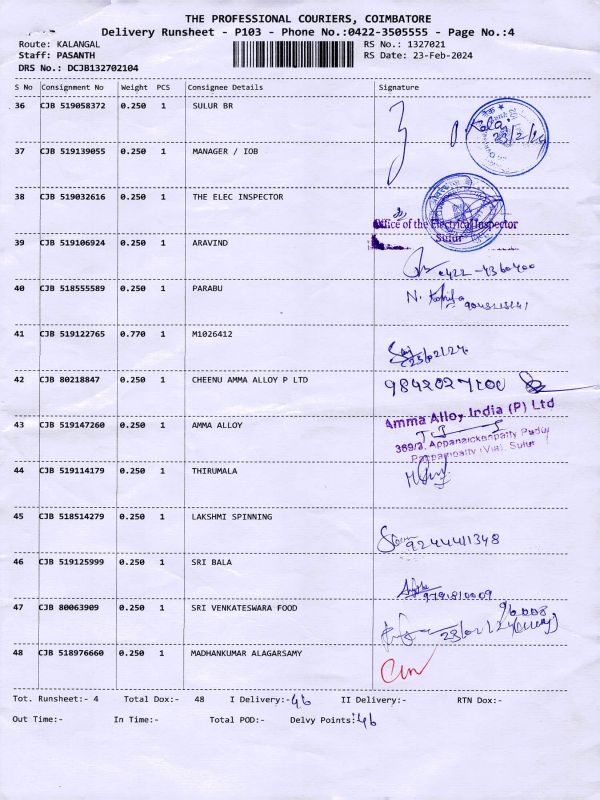 THE PROFESSIONAL COURIERS, COIMBATORE
Delivery Runsheet - P103 - Phone No.:0422-3505555 - Page No.:4
Route: KALANGAL RS No.: 1327021
Staff: PASANTH RS Date: 23-Feb-2024
DRS No.: DCJB132702104
S No Consignment No Weight PCS Consignee Details Signature
36 CJB 519058372 0.250 1 SULUR BR
37 CJB 519139055 0.250 1 MANAGER / IOB
38 CJB 519032616 0.250 1 THE ELEC INSPECTOR
Office of the Electrical Inspector
Sulur
39 CJB 519106924 0.250 1 ARAVIND
0422-4360400
40 CJB 518555589 0.250 1 PARABU
41 CJB 519122765 0.770 1 M1026412
42 CJB 80218847 0.250 1 CHEENU AMMA ALLOY P LTD
43 CJB 519147260 0.250 1 AMMA ALLOY
Amma Alloy India (P) Ltd
44 CJB 519114179 0.250 1 THIRUMALA
45 CJB 518514279 0.250 1 LAKSHMI SPINNING
9244411348
46 CJB 519125999 0.250 1 SRI BALA
47 CJB 80063909 0.250 1 SRI VENKATESWARA FOOD
48 CJB 518976660 0.250 1 MADHANKUMAR ALAGARSAMY
Tot. Runsheet:- 4 Total Dox:- 48 I Delivery:- 46 II Delivery:- RTN Dox:-
Out Time:- In Time:- Total POD:- Delvy Points: 46